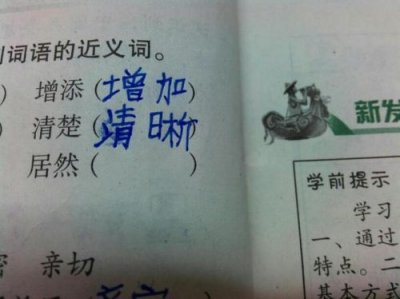 词语的近义词。
) 增添 (增加)
) 清楚 (靖晰)
居然 ( )
亲切
新发
学前提示
学习
一、通过
特点。二
基本方式